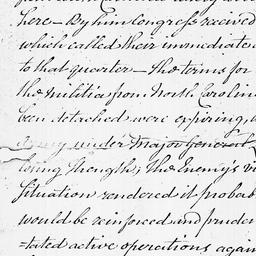 here— By him Congress received
which called their immediate
to that quarter— The terms for
the militia from North Carolina
been detached were expiring,
army under Major General
being Thought; the Enemy's
situation rendered it probab
would be reinforced and pruden
=tated active operations again